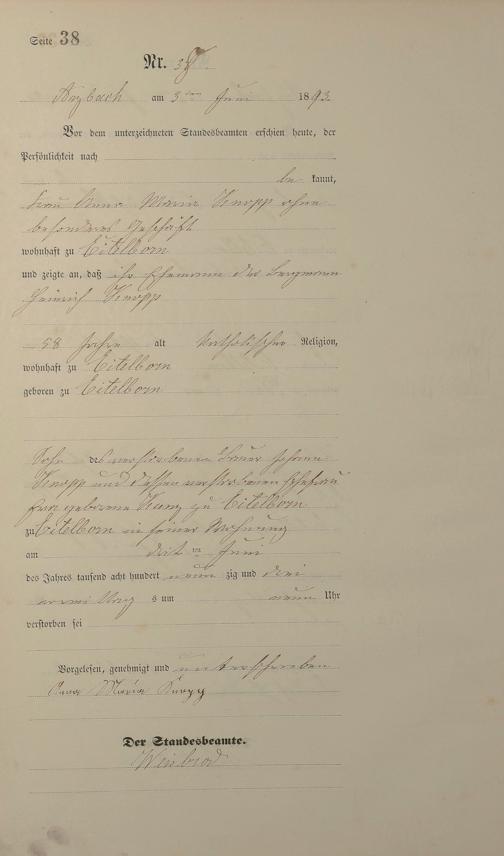 Seite 38
Nr. 38.
Arzbach am 3ten Juni 1893
Vor dem unterzeichneten Standesbeamten erschien heute, der
Persönlichkeit nach
be kannt,
Frau Anna Maria Knopp ohne
besonderes Geschäft
wohnhaft zu Eitelborn
und zeigte an, daß ihr Ehemann der Bergmann
Heinrich Knopp
58 Jahre alt katholischer Religion,
wohnhaft zu Eitelborn
geboren zu Eitelborn
Sohn des verstorbenen Johann
Knopp und dessen verstorbenen Ehefrau
geborene Kunz zu Eitelborn
zu Eitelborn in seiner Wohnung
am Juni
des Jahres tausend acht hundert neun zig und drei
um neun Uhr
verstorben sei
Vorgelesen, genehmigt und unterschrieben
Anna Maria Knopp
Der Standesbeamte.
Weisbrod